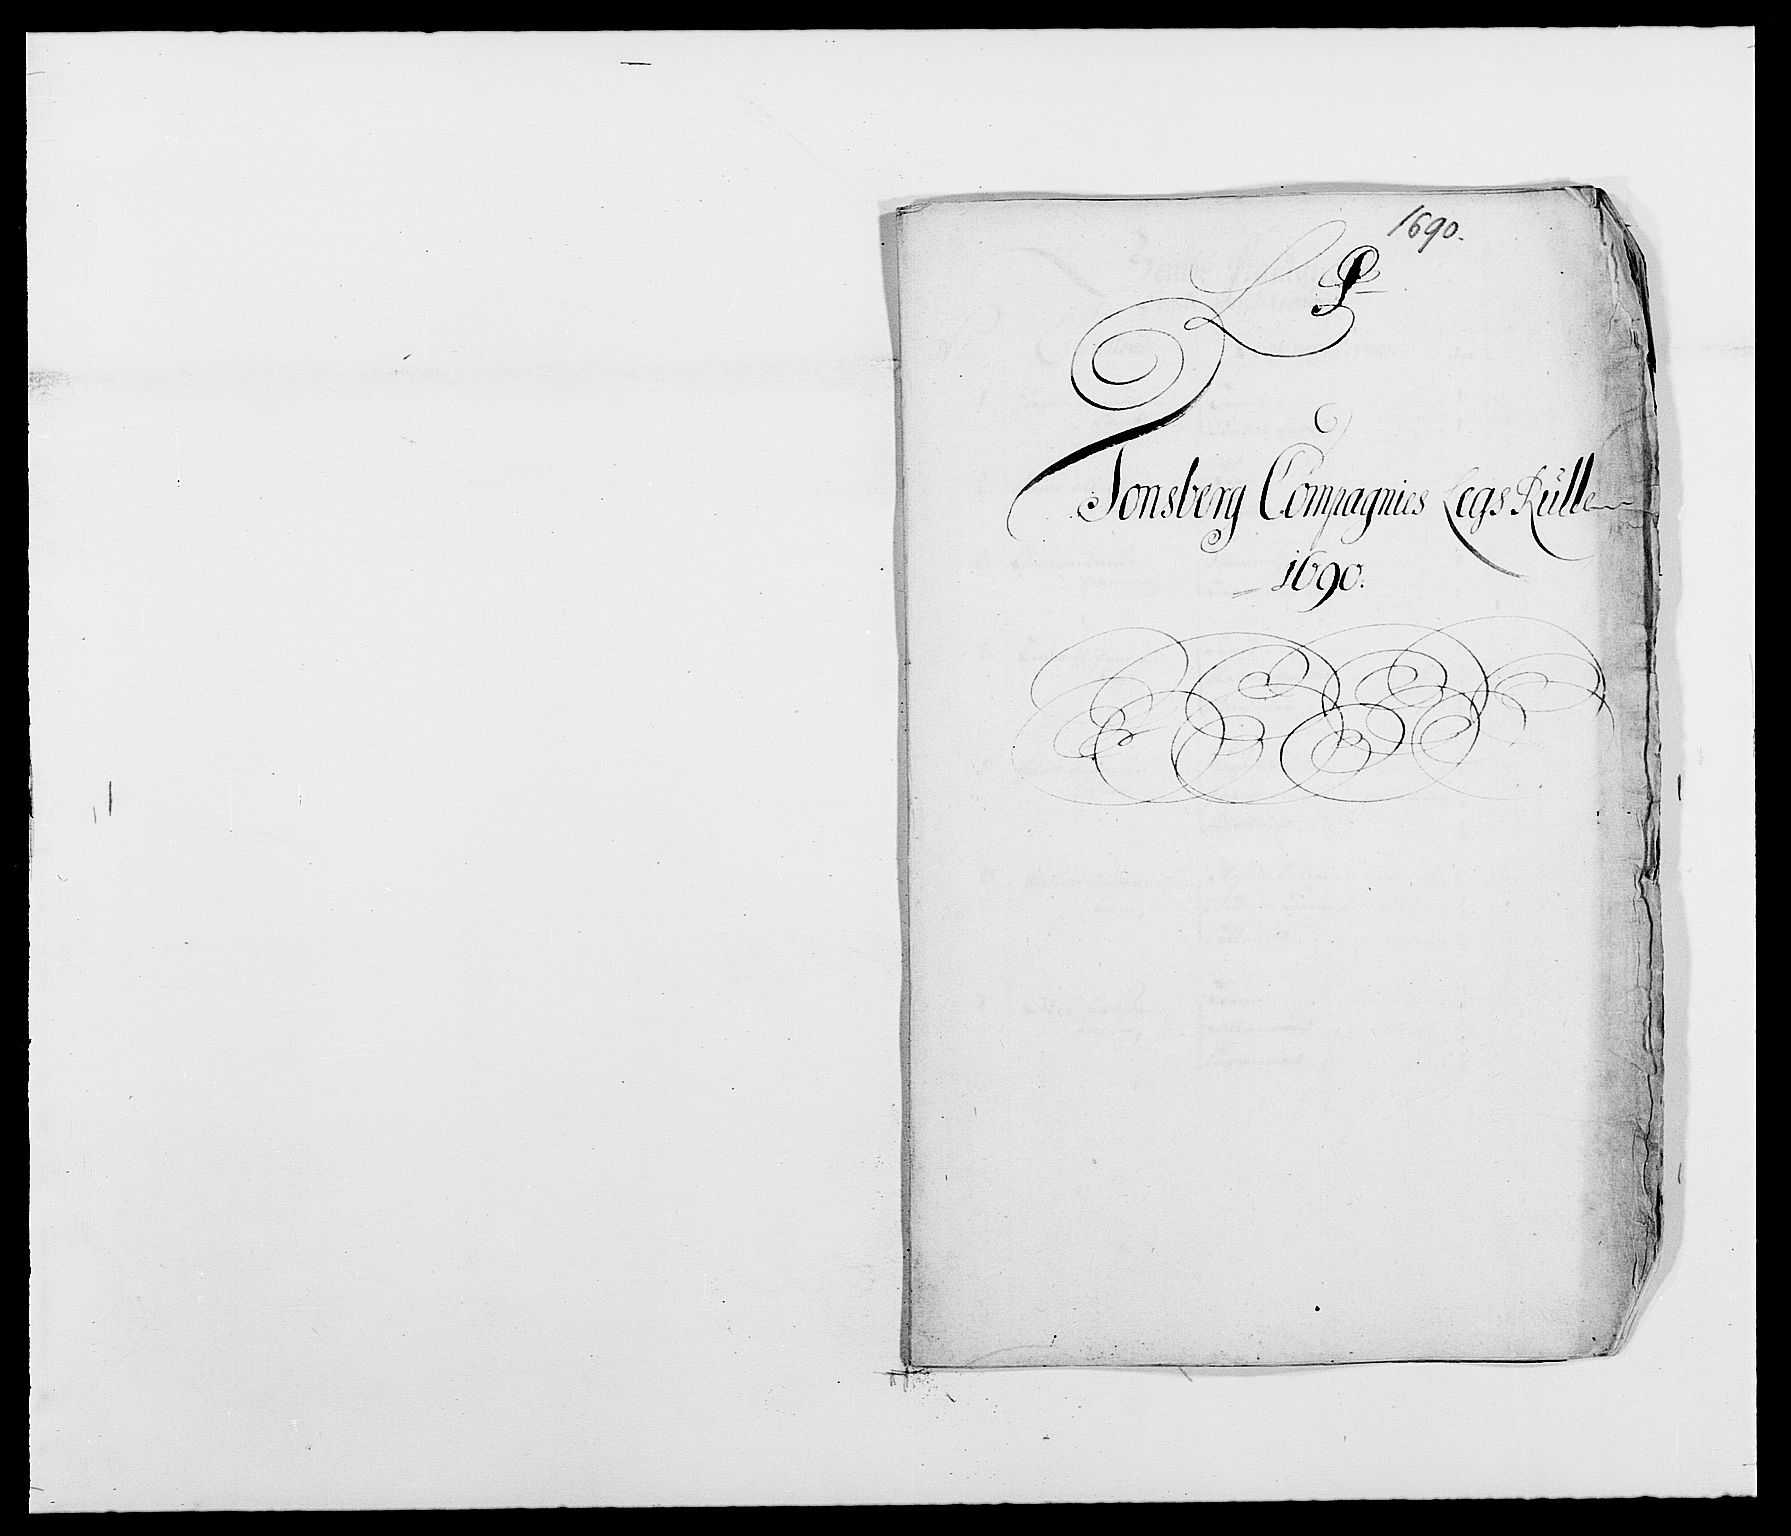 1690.
Tonsberg Compagnies Legs Rüll
1690.